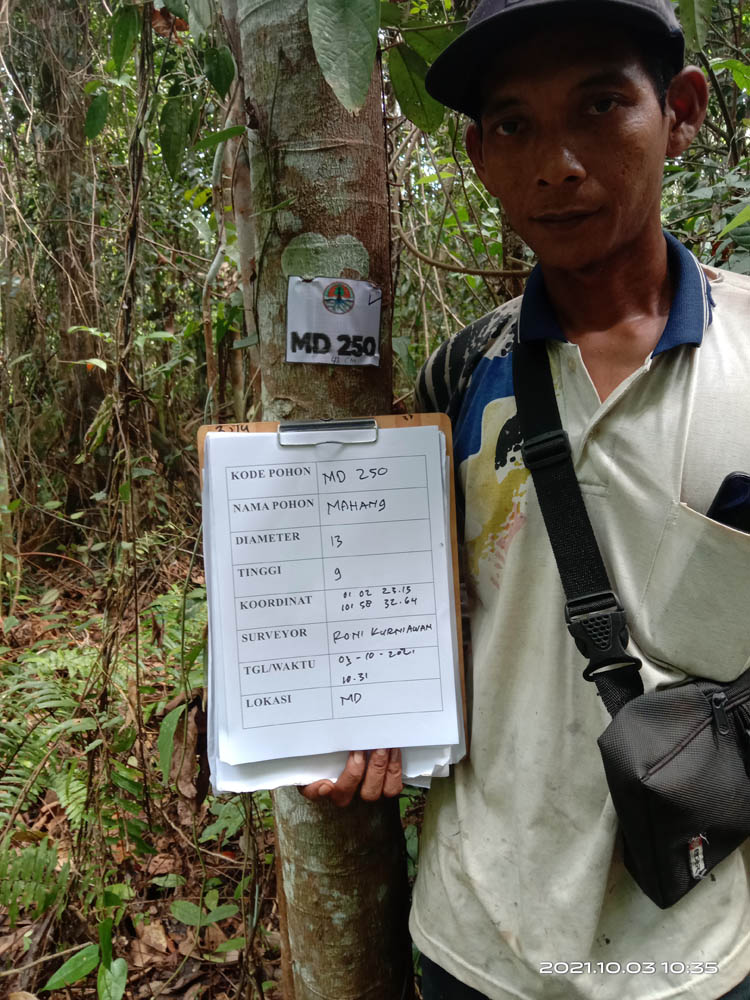 MD 250
41 CM
KODE POHON MD 250
NAMA POHON MAHANG
DIAMETER 13
TINGGI 9
KOORDINAT 01 02 23.15
101 58 32.64
SURVEYOR RONI KURNIAWAN
TGL/WAKTU 03-10-2021
10.31
LOKASI MD
2021.10.03 10:35